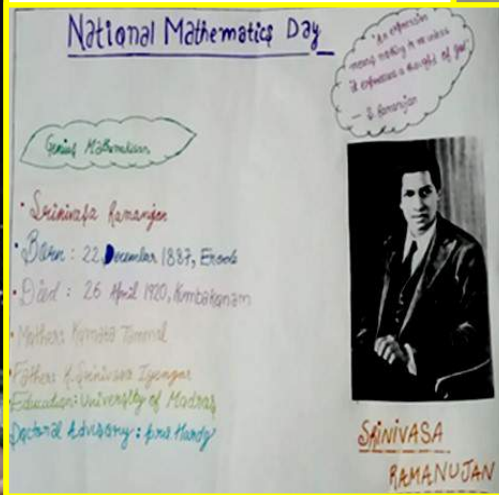 National Mathematics Day
"An expression
means nothing to me unless
it expresses a thought of god"
- S. Ramanujan
Genius Mathematician
• Srinivasa Ramanujan
• Born : 22 December 1887, Erode
• Died : 26 April 1920, Kumbakonam
• Mother: Kamala Tammal
• Father: K. Srinivasa Iyengar
Education: University of Madras
Doctoral Advisory :
Hardy
SRINIVASA
RAMANUJAN